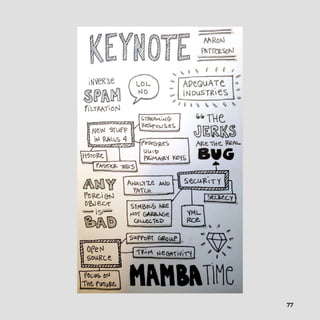 KEYNOTE
AARON
PATTERSON
INVERSE
SPAM
FILTRATION
LOL
NO
ADEQUATE
INDUSTRIES
STREAMING
RESPONSES
NEW STUFF
IN RAILS 4
POSTGRES
UUID
PRIMARY KEYS
HSTORE
FASTER TESTS
"THE
JERKS
ARE THE REAL
BUG
ANY
FOREIGN
OBJECT
IS
BAD
ANALYZE AND
PATCH
SECURITY
SECRECY
SYMBOLS ARE
NOT GARBAGE
COLLECTED
YML
RCE
SUPPORT GROUP
OPEN
SOURCE
TRIM NEGATIVITY
FOCUS ON
THE FUTURE
MAMBA TIME
77